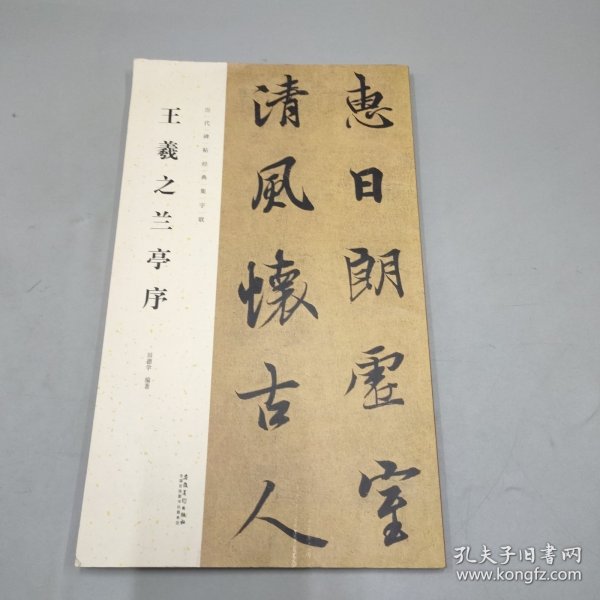 惠日朗虚室
清風懷古人
历代碑帖经典集字联
王羲之兰亭序
编著
孔夫子旧书网
www.kongfz.com